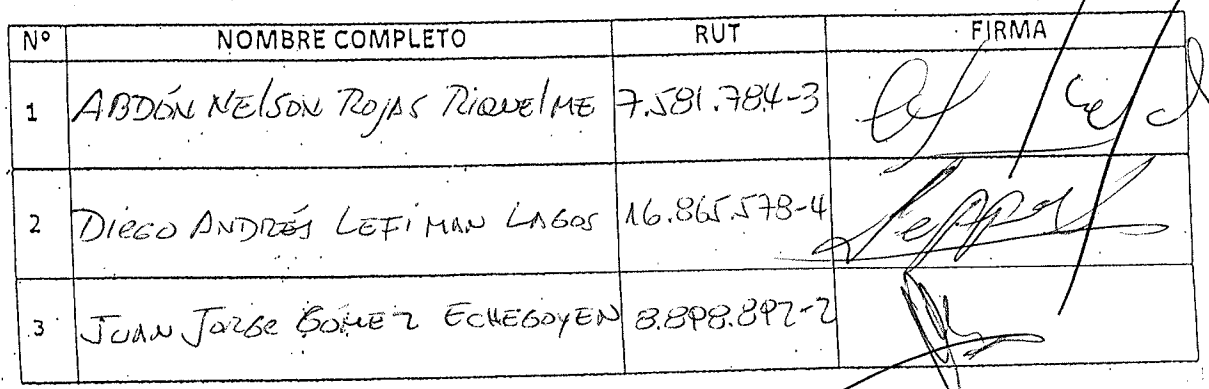 Nº NOMBRE COMPLETO RUT FIRMA
1 ABDÓN NELSON ROJAS RIQUELME 7.581.784-3
2 DIEGO ANDRÉS LEFIMAN LAGOS 16.865.578-4
3 JUAN JORGE GÓMEZ ECHEGOYEN 8.898.892-2